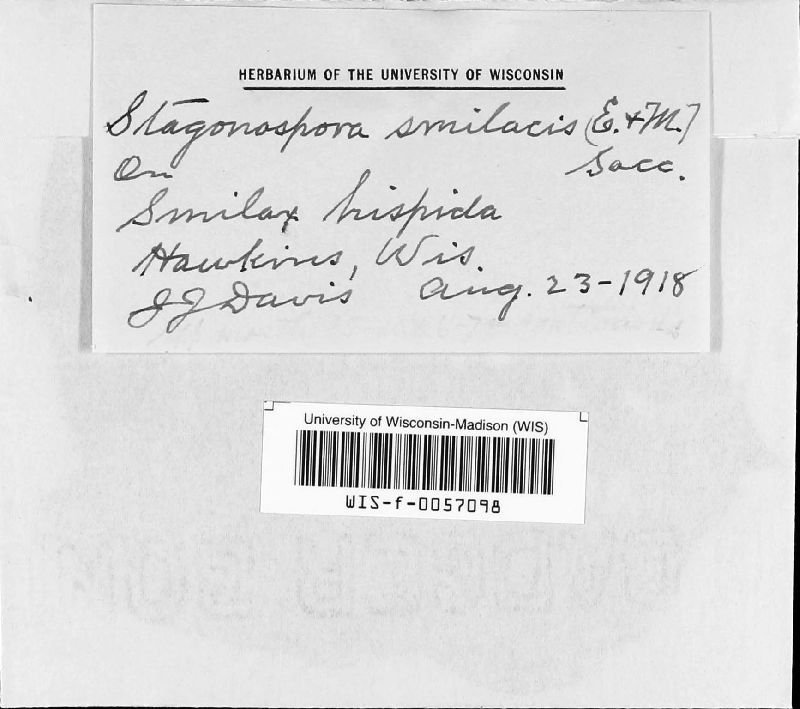 HERBARIUM OF THE UNIVERSITY OF WISCONSIN
Stagonospora smilacis (E. + M.)
Sacc.
On
Smilax hispida
Hawkins, Wis.
J J Davis Aug. 23-1918
University of Wisconsin-Madison (WIS)
WIS-f-0057098